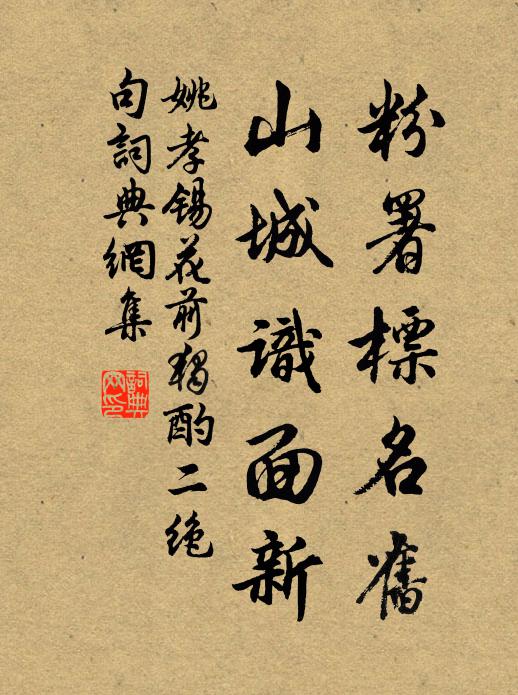 粉署標名舊
山城識面新
姚孝錫花前獨酌二絕
句詞典網集
詞典網印